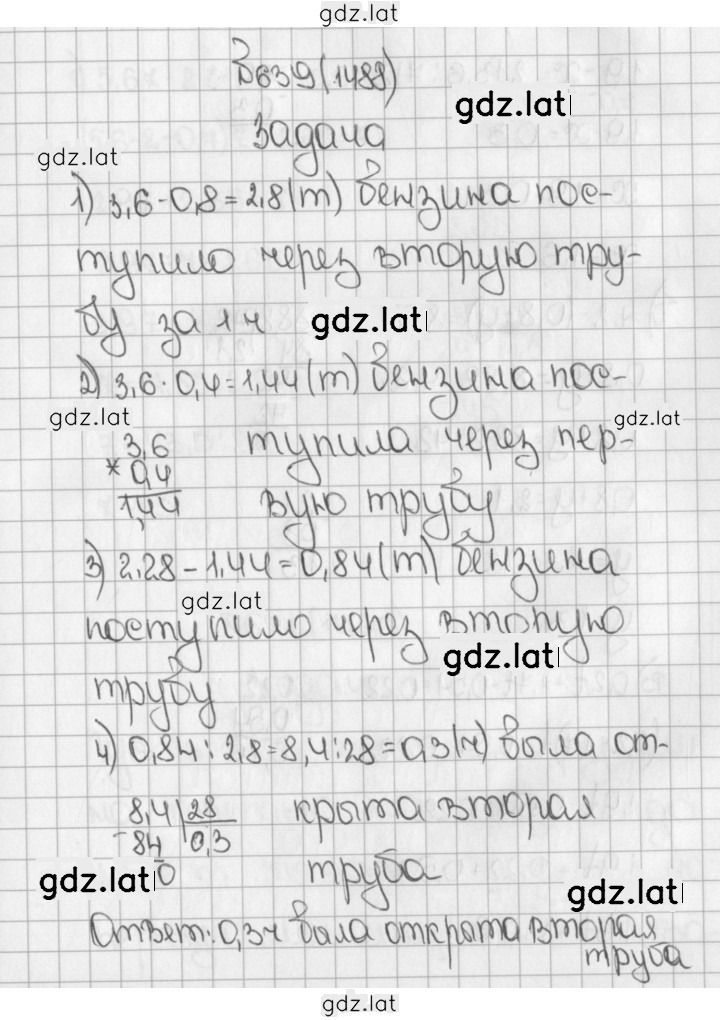 gdz.lat
639(1488)
gdz.lat
Задача
gdz.lat
1) 3,6-0,8=2,8(т) бензина пос-
тупило через вторую тру-
бу за 1 ч
gdz.lat
2) 3,6·0,4=1,44(т) бензина пос-
gdz.lat
gdz.lat
3,6
тупила через пер-
* 0,4
1,44
вую трубу
3) 2,28-1,44=0,84(т) бензина
gdz.lat
поступило через вторую
gdz.lat
трубу
4) 0,84:2,8=8,4:28=0,3(ч) была от-
8,4 28
крыта вторая
-84 0,3
0
труба
gdz.lat
gdz.lat
Ответ: 0,3ч была открыта вторая
труба
gdz.lat